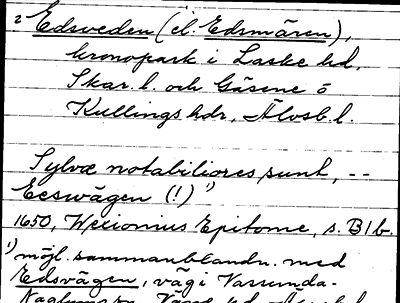 2 Edsveden (el. Edsmären),
kronopark i Laske hd,
Skar. l. och Gäsene o
Kullings hdr, Älvsb. l.
Sylvæ notabiliores sunt, --
Eeswägen (!) 1)
1650, Wexionius Epitome, s. B1b.
1) möjl. sammanblandn. med
Edsvägen, väg i Vassunda-